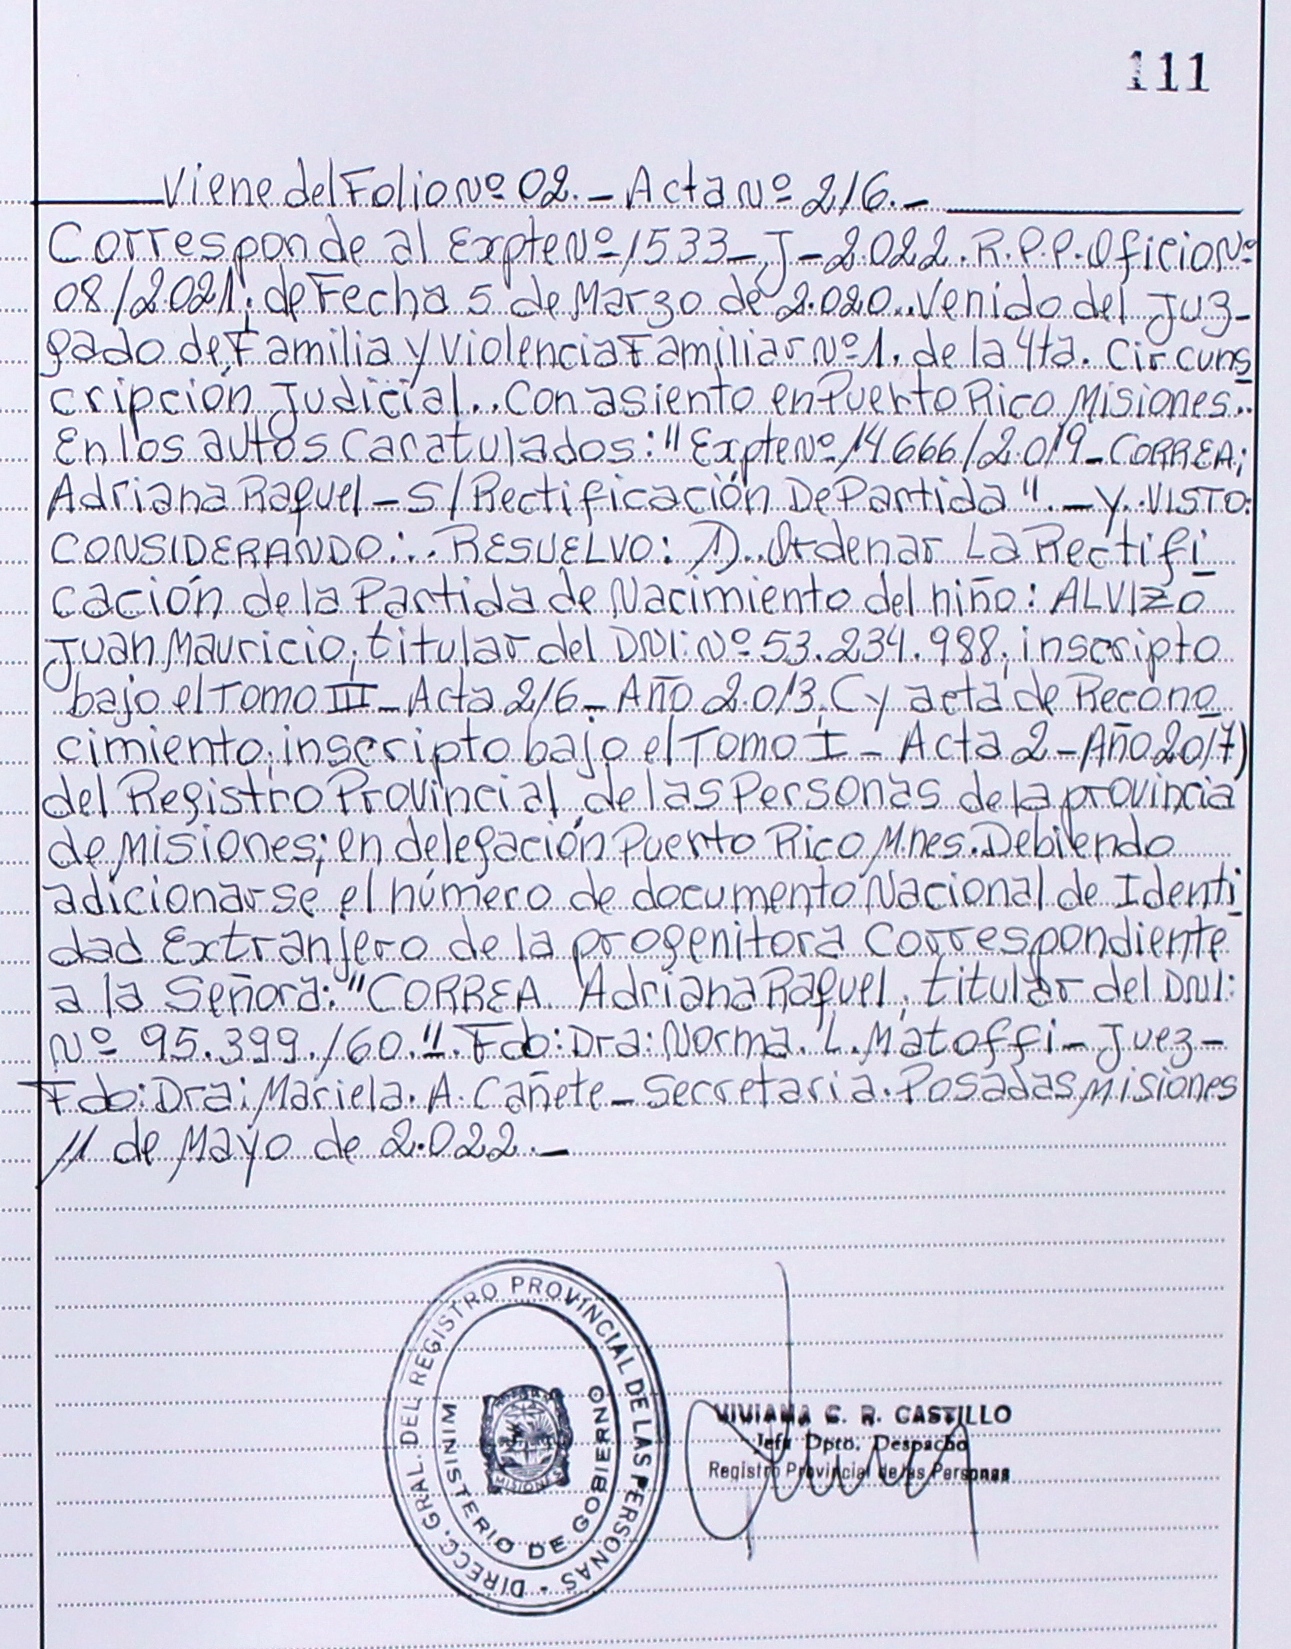 111
Viene del Folio Nº 02.- Acta Nº 216.-
Corresponde al Expte Nº 1533-J-2.022. R.P.P. Oficio Nº
08/2.021; de Fecha 5 de Marzo de 2.020.. Venido del Juz-
gado de Familia y Violencia Familiar Nº 1. de la 4ta. Circuns
cripción Judicial... Con asiento en Puerto Rico Misiones..
En los autos Caratulados: "Expte Nº 14666/2.019- CORREA;
Adriana Raquel - S/Rectificación De Partida". - Y. VISTO:
CONSIDERANDO:.. RESUELVO: 1). Ordenar La Rectifi
cación de la Partida de Nacimiento del niño: ALVIZO
Juan Mauricio, titular del DNI: Nº 53.234.988; inscripto
bajo el Tomo III - Acta 216 - Año 2.013, (y acta de Recono
cimiento; inscripto bajo el Tomo I - Acta 2 - Año 2017)
del Registro Provincial de las Personas de la provincia
de Misiones; en delegación Puerto Rico Mnes. Debiendo
adicionarse el número de documento Nacional de Identi
dad Extranjero de la progenitora Correspondiente
a la Señora: "CORREA Adriana Raquel, titular del DNI:
Nº 95.399.160.". Fdo: Dra: Norma. L. Matoffi - Juez -
Fdo: Dra: Mariela. A. Cañete - Secretaria. Posadas, Misiones
11 de Mayo de 2.022.-
DIRECC. GRAL. DEL REGISTRO PROVINCIAL DE LAS PERSONAS
MINISTERIO DE GOBIERNO
MISIONES
VIVIANA C. R. CASTILLO
Jefe Dpto. Despacho
Registro Provincial de las Personas